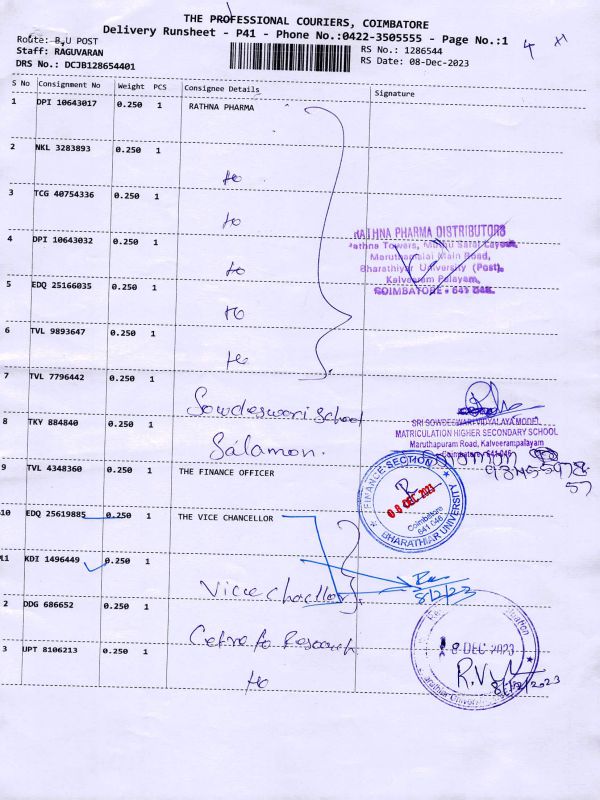 THE PROFESSIONAL COURIERS, COIMBATORE
Delivery Runsheet - P41 - Phone No.:0422-3505555 - Page No.:1
Route: B,U POST
Staff: RAGUVARAN
DRS No.: DCJB128654401
RS No.: 1286544
RS Date: 08-Dec-2023
S No Consignment No Weight PCS Consignee Details Signature
1 DPI 10643017 0.250 1 RATHNA PHARMA
2 NKL 3283893 0.250 1
3 TCG 40754336 0.250 1
4 DPI 10643032 0.250 1
RATHNA PHARMA DISTRIBUTORS
Maruthamalai Main Road,
Bharathiyar University (Post),
Kalveeram Palayam,
COIMBATORE - 641 046.
5 EDQ 25166035 0.250 1
6 TVL 9893647 0.250 1
7 TVL 7796442 0.250 1 Sowdeswari School
SRI SOWDESWARI VIDYALAYA MODEL
MATRICULATION HIGHER SECONDARY SCHOOL
Maruthapuram Road, Kalveerampalayam
Coimbatore - 641 046
8 TKY 884840 0.250 1 Salamon.
9 TVL 4348360 0.250 1 THE FINANCE OFFICER
FINANCE SECTION
08 DEC 2023
Coimbatore
641 046
BHARATHIAR UNIVERSITY
10 EDQ 25619885 0.250 1 THE VICE CHANCELLOR
11 KDI 1496449 0.250 1
8/12/23
2 DDG 686652 0.250 1
8 DEC 2023
R.V
8/12/2023
3 UPT 8106213 0.250 1